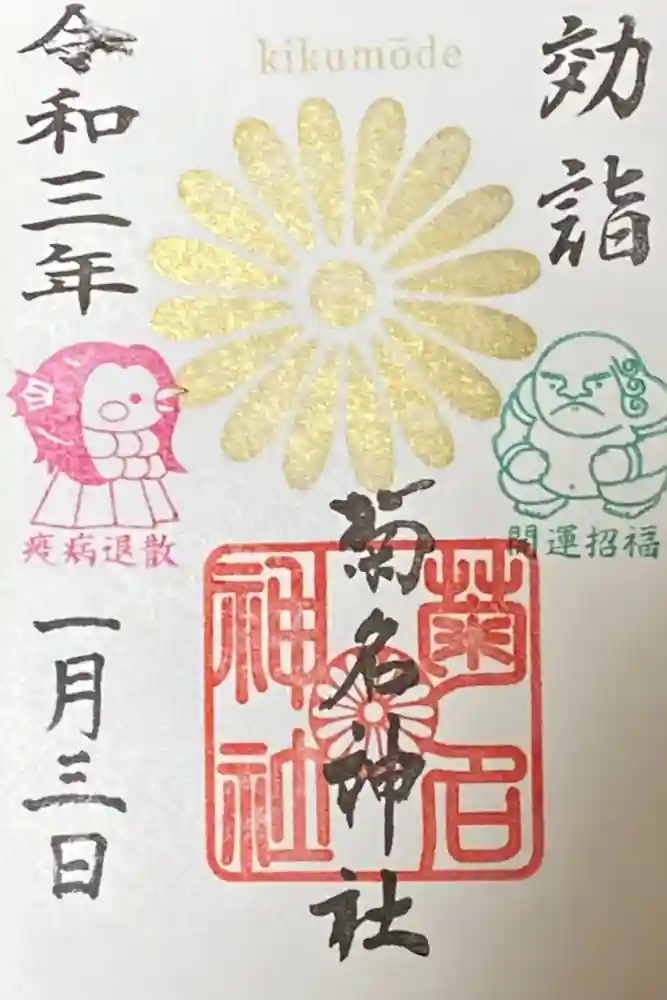 kikumōde
効詣
開運招福
菊名神社
菊名
神社
令和三年
疫病退散
一月三日